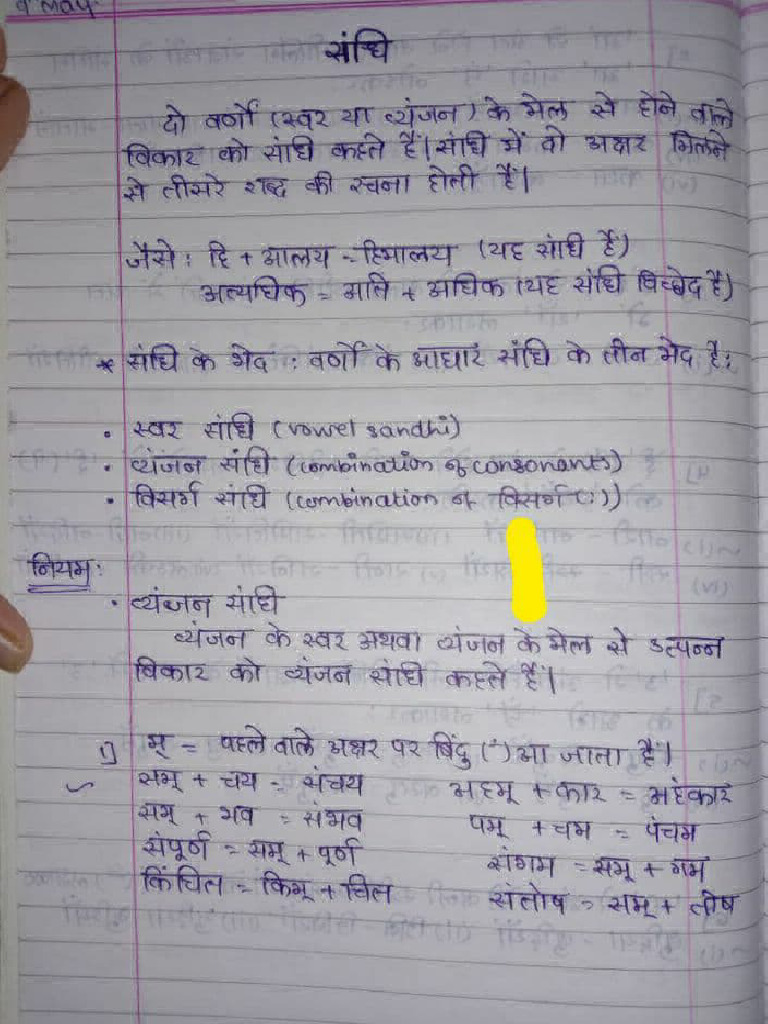 9 May.
संधि
दो वर्णों (स्वर या व्यंजन) के मेल से होने वाले
विकार को संधि कहते हैं। संधि में दो अक्षर मिलने
से तीसरे शब्द की रचना होती हैं।
जैसे: हि + आलय = हिमालय (यह संधि हैं)
अत्यधिक = अति + अधिक (यह संधि विच्छेद है)
* संधि के भेद : वर्णों के आधार संधि के तीन भेद हैं:
• स्वर संधि (vowel sandhi)
• व्यंजन संधि (combination of consonants)
• विसर्ग संधि (combination of विसर्ग (:))
नियम:
• व्यंजन संधि
व्यंजन के स्वर अथवा व्यंजन के मेल से उत्पन्न
विकार को व्यंजन संधि कहते हैं।
1) म् = पहले वाले अक्षर पर बिंदु (ं) आ जाता हैं।
सम् + चय = संचय अहम् + कार = अहंकार
सम् + भव = संभव पम् + चम = पंचम
संपूर्ण = सम् + पूर्ण संगम = सम् + गम
किंचित = किम् + चित संतोष = सम् + तोष